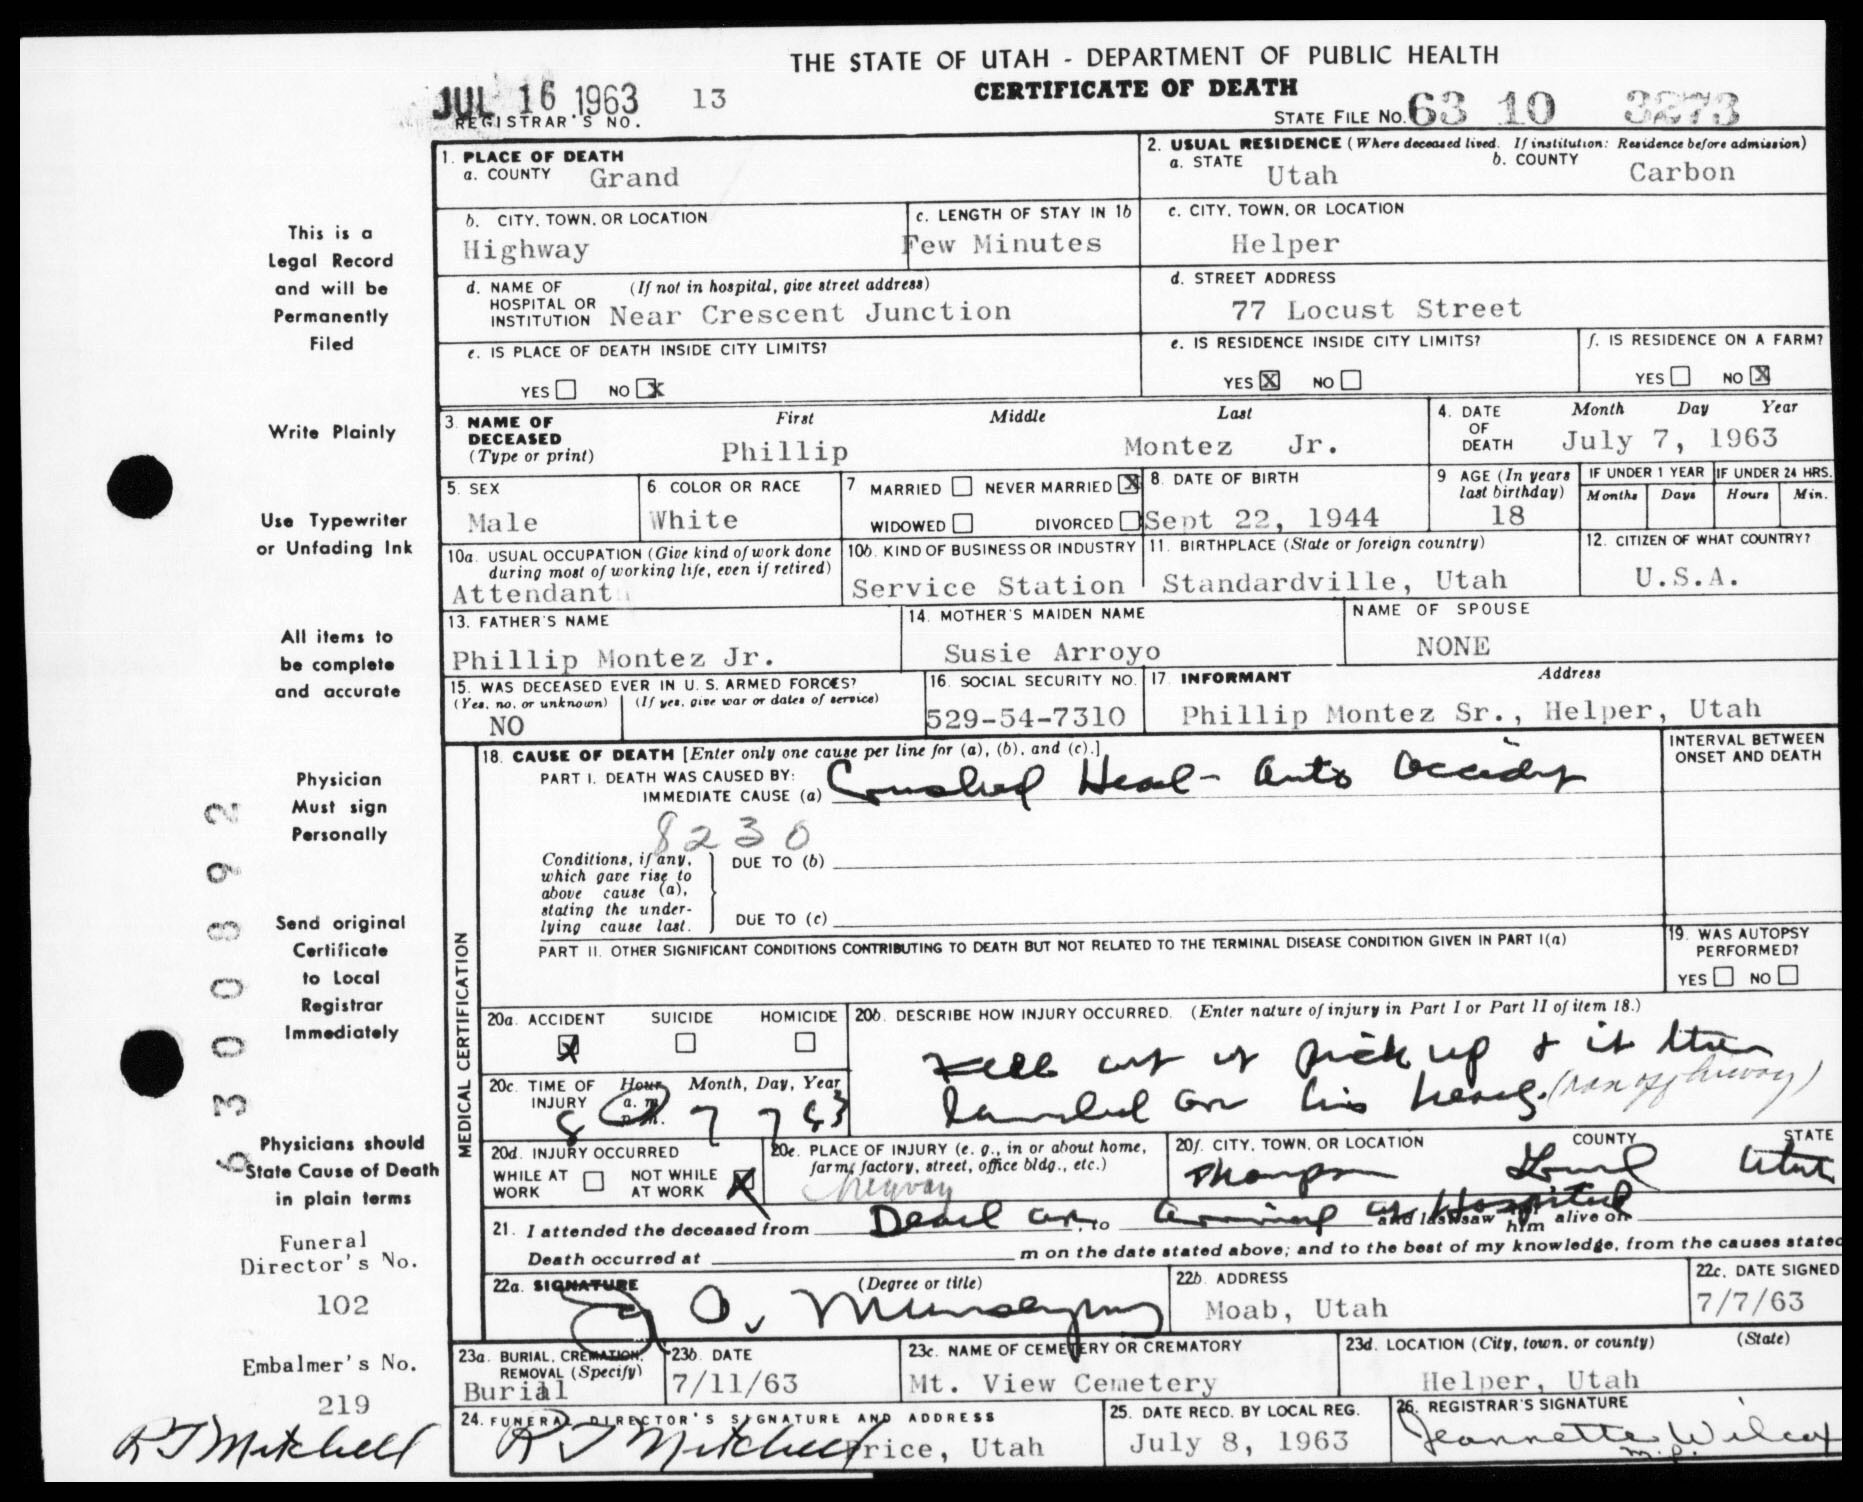 THE STATE OF UTAH - DEPARTMENT OF PUBLIC HEALTH
CERTIFICATE OF DEATH
JUL 16 1963 13
REGISTRAR'S NO.
STATE FILE NO. 63 10 3273
1. PLACE OF DEATH
a. COUNTY Grand
2. USUAL RESIDENCE (Where deceased lived. If institution: Residence before admission)
a. STATE Utah b. COUNTY Carbon
b. CITY, TOWN, OR LOCATION
Highway
c. LENGTH OF STAY IN 1b
Few Minutes
c. CITY, TOWN, OR LOCATION
Helper
d. NAME OF HOSPITAL OR INSTITUTION (If not in hospital, give street address)
Near Crescent Junction
d. STREET ADDRESS
77 Locust Street
e. IS PLACE OF DEATH INSIDE CITY LIMITS?
YES NO X
e. IS RESIDENCE INSIDE CITY LIMITS?
YES X NO
f. IS RESIDENCE ON A FARM?
YES NO X
3. NAME OF DECEASED (Type or print)
First Middle Last
Phillip Montez Jr.
4. DATE OF DEATH Month Day Year
July 7, 1963
5. SEX
Male
6. COLOR OR RACE
White
7 MARRIED NEVER MARRIED X
WIDOWED DIVORCED
8. DATE OF BIRTH
Sept 22, 1944
9 AGE (In years last birthday)
18
IF UNDER 1 YEAR IF UNDER 24 HRS.
Months Days Hours Min.
10a. USUAL OCCUPATION (Give kind of work done
during most of working life, even if retired)
Attendant
10b. KIND OF BUSINESS OR INDUSTRY
Service Station
11. BIRTHPLACE (State or foreign country)
Standardville, Utah
12. CITIZEN OF WHAT COUNTRY?
U.S.A.
13. FATHER'S NAME
Phillip Montez Jr.
14. MOTHER'S MAIDEN NAME
Susie Arroyo
NAME OF SPOUSE
NONE
15. WAS DECEASED EVER IN U. S. ARMED FORCES?
(Yes, no, or unknown) (If yes, give war or dates of service)
NO
16. SOCIAL SECURITY NO.
529-54-7310
17. INFORMANT Address
Phillip Montez Sr., Helper, Utah
18. CAUSE OF DEATH [Enter only one cause per line for (a), (b), and (c).]
PART I. DEATH WAS CAUSED BY:
IMMEDIATE CAUSE (a) Crushed Head - Auto Accident
INTERVAL BETWEEN ONSET AND DEATH
8230
Conditions, if any,
which gave rise to
above cause (a),
stating the under-
lying cause last.
DUE TO (b)
DUE TO (c)
PART II. OTHER SIGNIFICANT CONDITIONS CONTRIBUTING TO DEATH BUT NOT RELATED TO THE TERMINAL DISEASE CONDITION GIVEN IN PART I(a)
19. WAS AUTOPSY PERFORMED?
YES NO
MEDICAL CERTIFICATION
20a. ACCIDENT SUICIDE HOMICIDE
X
20b. DESCRIBE HOW INJURY OCCURRED. (Enter nature of injury in Part I or Part II of item 18.)
Fell out of pick up & it then
landed on his head. (ran off hiway)
20c. TIME OF INJURY Hour Month, Day, Year
a. m. p. m.
8 7 7 63
20d. INJURY OCCURRED
WHILE AT WORK NOT WHILE AT WORK X
20e. PLACE OF INJURY (e. g., in or about home,
farm, factory, street, office bldg., etc.)
highway
20f. CITY, TOWN, OR LOCATION COUNTY STATE
Thompson Grand Utah
21. I attended the deceased from Dead on, to arrival at Hospital and last saw him alive on
Death occurred at m on the date stated above; and to the best of my knowledge, from the causes stated
22a. SIGNATURE (Degree or title)
22b. ADDRESS
Moab, Utah
22c. DATE SIGNED
7/7/63
23a. BURIAL, CREMATION, REMOVAL (Specify)
Burial
23b. DATE
7/11/63
23c. NAME OF CEMETERY OR CREMATORY
Mt. View Cemetery
23d. LOCATION (City, town, or county) (State)
Helper, Utah
24. FUNERAL DIRECTOR'S SIGNATURE AND ADDRESS
R J Mitchell Price, Utah
25. DATE RECD. BY LOCAL REG.
July 8, 1963
26. REGISTRAR'S SIGNATURE
Jeannette Wilcox
This is a
Legal Record
and will be
Permanently
Filed
Write Plainly
Use Typewriter
or Unfading Ink
All items to
be complete
and accurate
Physician
Must sign
Personally
Send original
Certificate
to Local
Registrar
Immediately
Physicians should
State Cause of Death
in plain terms
Funeral
Director's No.
102
Embalmer's No.
219
R J Mitchell
63000892